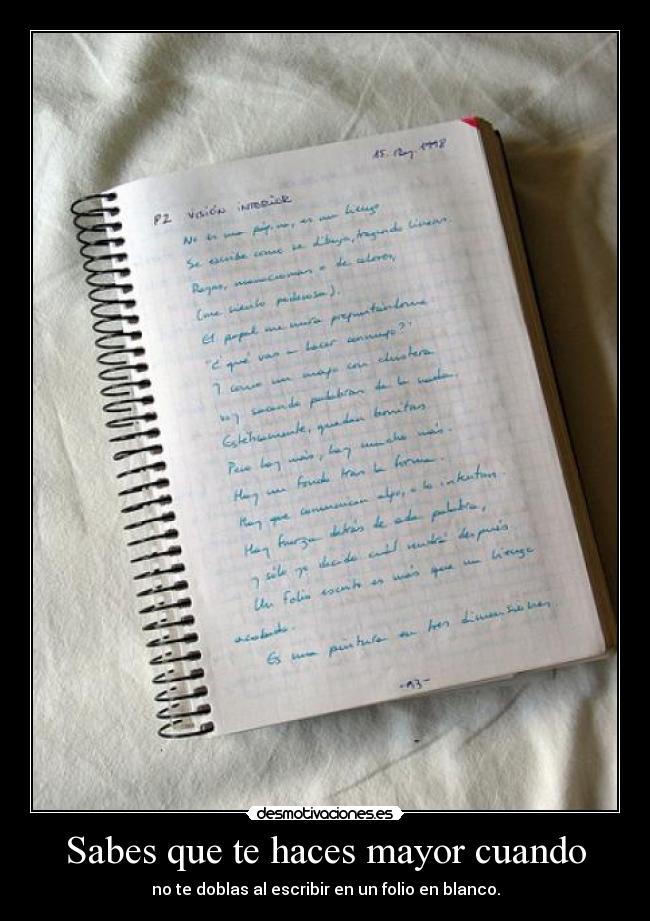 15. May. 1998
P2 VISIÓN INTERIOR
No es una página, es un lienzo
Se escribe como se dibuja, trazando líneas.
Rayas, monocromas o de colores,
(me siento poderosa).
El papel me mira preguntándome:
"¿qué vas a hacer conmigo?"
Y como un mago con chistera
voy sacando palabras de la nada.
Estéticamente, quedan bonitas
Pero hay más, hay mucho más.
Hay un fondo tras la forma.
Hay que comunicar algo, o lo intentan.
Hay fuerza detrás de cada palabra,
y sólo yo decido cuál vendrá después
Un folio escrito es más que un lienzo
acabado.
Es una pintura en tres dimensiones.
-93-
desmotivaciones.es
Sabes que te haces mayor cuando
no te doblas al escribir en un folio en blanco.